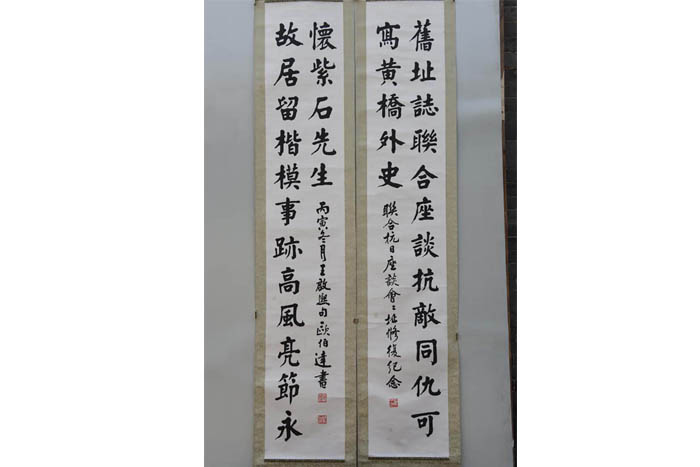 舊址誌聯合座談抗敵同仇可
寫黃橋外史
聯合抗日座談會會址修復紀念
故居留楷模事跡高風亮節永
懷紫石先生
丙寅冬月王啟興句歐伯達書